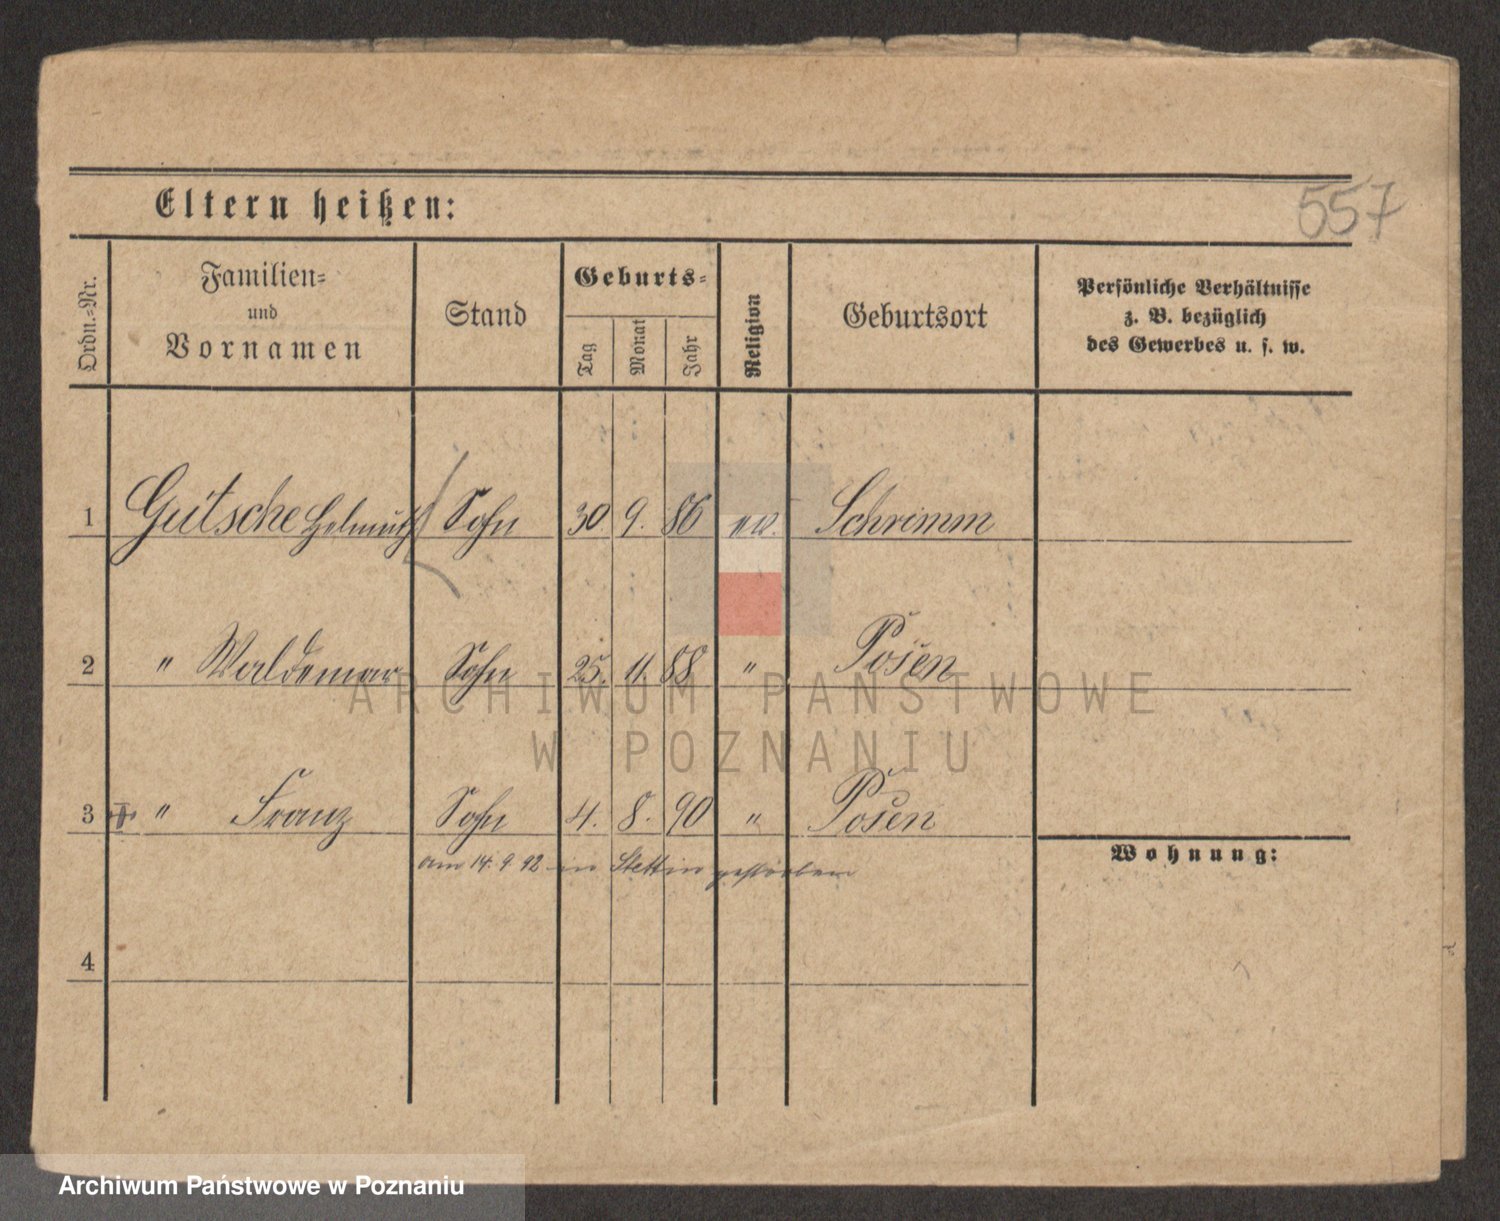 Eltern heißen:
557
Ordn.-Nr.
Familien-
und
Vornamen
Stand
Geburts-
Tag
Monat
Jahr
Religion
Geburtsort
Persönliche Verhältnisse
z. B. bezüglich
des Gewerbes u. s. w.
1 Gutsche Helmuth Sohn 30 9. 86 ev. Schrimm
2 " Waldemar Sohn 25. 11. 88 " Posen
3 " Franz Sohn 4. 8. 90 " Posen
am 14. 9 92 in Stettin gestorben
Wohnung:
4
ARCHIWUM PAŃSTWOWE
W POZNANIU
Archiwum Państwowe w Poznaniu